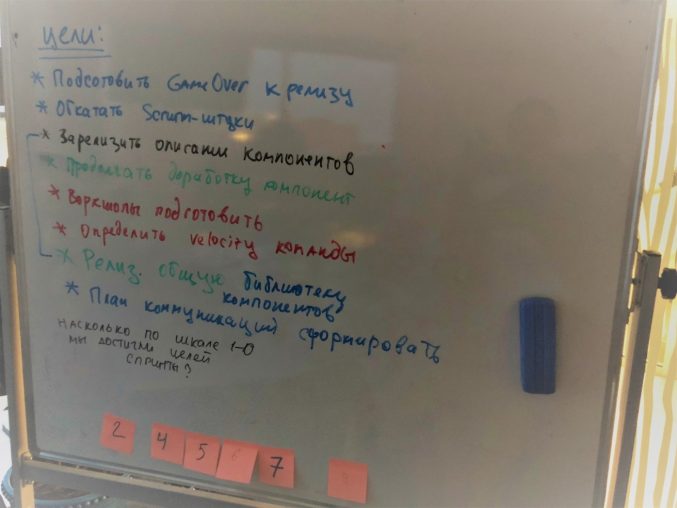 Цели:
* Подготовить GameOver к релизу
* Откатать Scrum-штуки
* Зарелизить описании компонентов
* Продолжать доработку компонент
* Воркшопы подготовить
* Определить velocity команды
* Релиз. общую библиотеку
компонентов
* План коммуникаций сформировать
НАСКОЛЬКО ПО ШКАЛЕ 1-0
МЫ ДОСТИГЛИ ЦЕЛЕЙ
СПРИНТЫ?
2 4 5 6 7 8